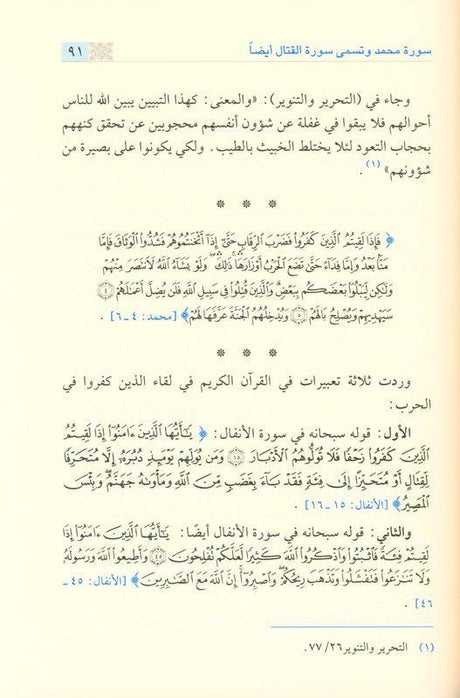 سورة محمد وتسمى سورة القتال أيضاً ٩١
وجاء في (التحرير والتنوير): «والمعنى: كهذا التبيين يبين الله للناس
أحوالهم فلا يبقوا في غفلة عن شؤون أنفسهم محجوبين عن تحقق كنههم
بحجاب التعود لئلا يختلط الخبيث بالطيب. ولكي يكونوا على بصيرة من
شؤونهم» (١).
* * *
﴿ فَإِذَا لَقِيتُمُ الَّذِينَ كَفَرُوا فَضَرْبَ الرِّقَابِ حَتَّى إِذَا أَثْخَنتُمُوهُمْ فَشُدُّوا الْوَثَاقَ فَإِمَّا
مَنًّا بَعْدُ وَإِمَّا فِدَاءً حَتَّى تَضَعَ الْحَرْبُ أَوْزَارَهَا ذَلِكَ وَلَوْ يَشَاءُ اللَّهُ لَانتَصَرَ مِنْهُمْ
وَلَكِن لِّيَبْلُوَا بَعْضَكُم بِبَعْضٍ وَالَّذِينَ قُتِلُوا فِي سَبِيلِ اللَّهِ فَلَن يُضِلَّ أَعْمَالَهُمْ ٤
سَيَهْدِيهِمْ وَيُصْلِحُ بَالَهُمْ ٥ وَيُدْخِلُهُمُ الْجَنَّةَ عَرَّفَهَا لَهُمْ﴾ [محمد: ٤ ـ ٦] .
* * *
وردت ثلاثة تعبيرات في القرآن الكريم في لقاء الذين كفروا في
الحرب:
الأول: قوله سبحانه في سورة الأنفال: ﴿ يَا أَيُّهَا الَّذِينَ ءَامَنُوا إِذَا لَقِيتُمُ
الَّذِينَ كَفَرُوا زَحْفًا فَلَا تُوَلُّوهُمُ الْأَدْبَارَ ١٥ وَمَن يُوَلِّهِمْ يَوْمَئِذٍ دُبُرَهُ إِلَّا مُتَحَرِّفًا
لِّقِتَالٍ أَوْ مُتَحَيِّزًا إِلَى فِئَةٍ فَقَدْ بَاءَ بِغَضَبٍ مِّنَ اللَّهِ وَمَأْوَاهُ جَهَنَّمُ وَبِئْسَ
الْمَصِيرُ﴾ [الأنفال: ١٥ ـ ١٦] .
والثاني: قوله سبحانه في سورة الأنفال أيضًا: يَا أَيُّهَا الَّذِينَ ءَامَنُوا إِذَا
لَقِيتُمْ فِئَةً فَاثْبُتُوا وَاذْكُرُوا اللَّهَ كَثِيرًا لَّعَلَّكُمْ تُفْلِحُونَ ٤٥ وَأَطِيعُوا اللَّهَ وَرَسُولَهُ
وَلَا تَنَازَعُوا فَتَفْشَلُوا وَتَذْهَبَ رِيحُكُمْ وَاصْبِرُوا إِنَّ اللَّهَ مَعَ الصَّابِرِينَ﴾ [الأنفال: ٤٥ ـ
٤٦] .
(١) التحرير والتنوير ٢٦/ ٧٧.